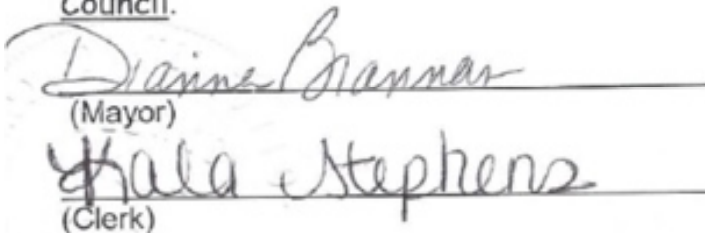 Council.
Dianne Brannan
(Mayor)
Kala Stephens
(Clerk)